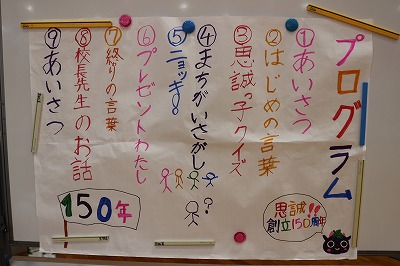 プログラム
①あいさつ
②はじめの言葉
③思誠っ子クイズ
④まちがいさがし
⑤ニョッキ!
⑥プレゼントわたし
⑦終りの言葉
⑧校長先生のお話
⑨あいさつ
?
思誠!!
創立150周年
150年